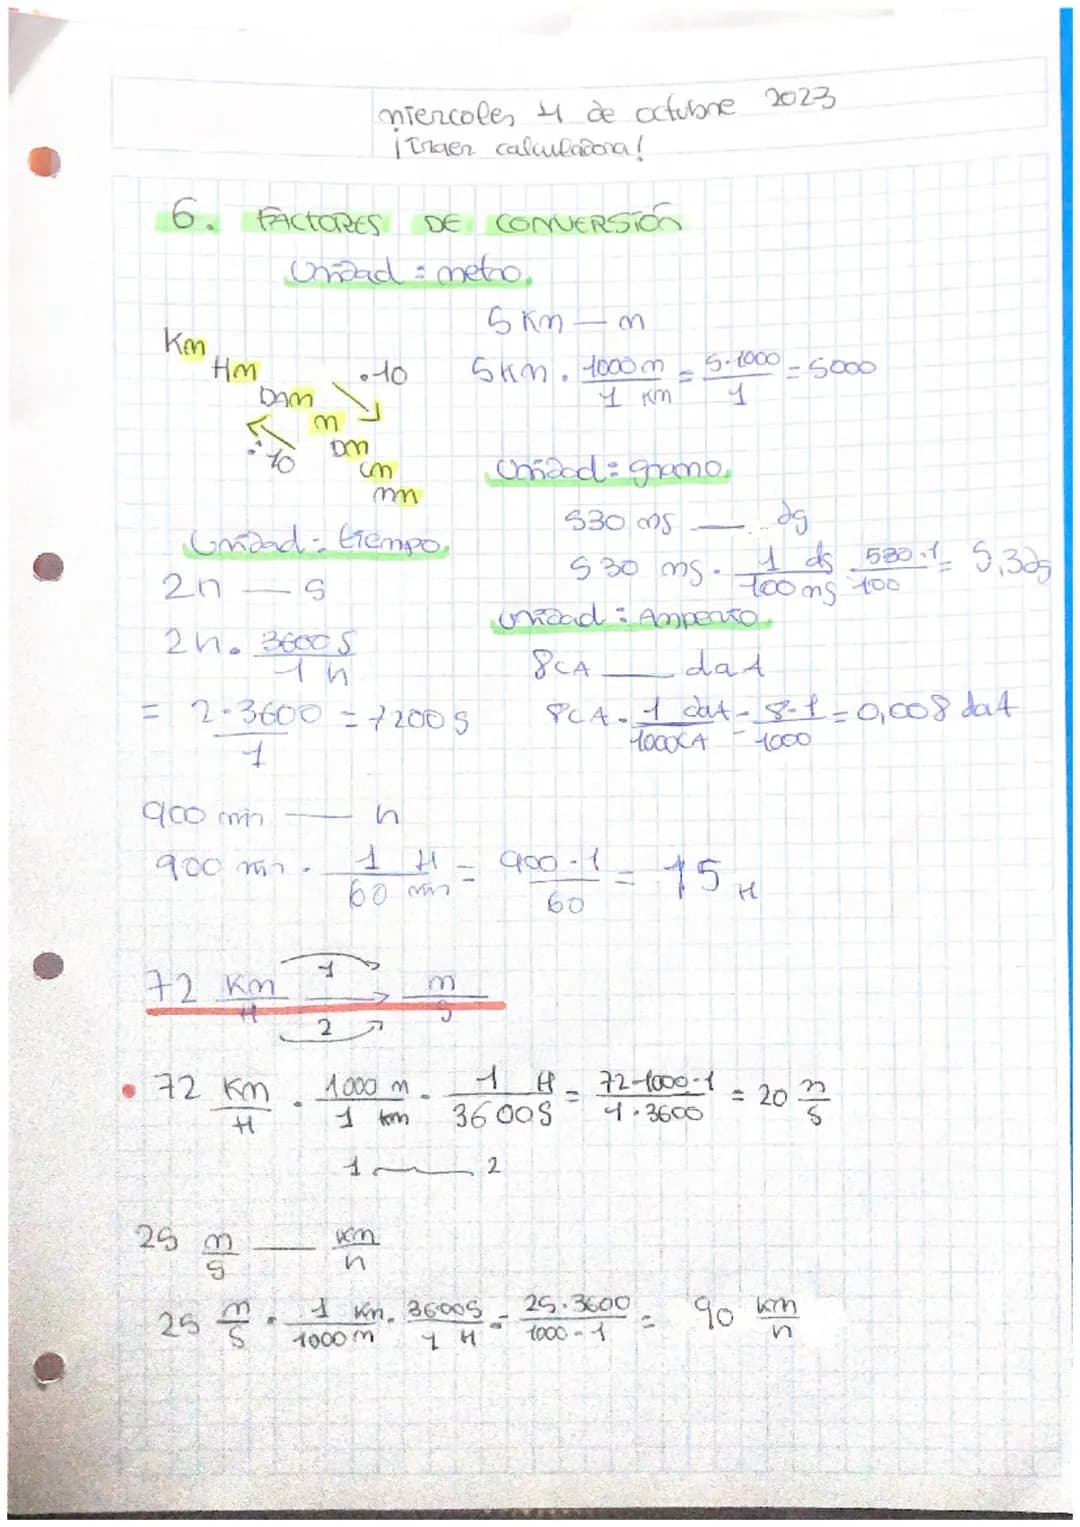 miercoles 4 de octubre 2023
¡traer calculadora!
6. FACTORES DE CONVERSIÓN
Unidad = metro.
Km
Hm
Dam
m
Dm
cm
mm
· 10
: 10
5 Km — m
5 Km · 1000 m / 1 Km = 5·1000 / 1 = 5000
Unidad = gramo.
530 mg — dg
530 mg · 1 dg / 100 mg = 530·1 / 100 = 5,3 dg
Unidad = tiempo.
2h — s
2h · 3600 s / 1 h
= 2·3600 / 1 = 7200 s
Unidad = Amperio.
8 cA — daA
8 cA · 1 daA / 1000 cA = 8·1 / 1000 = 0,008 daA
900 min — h
900 min · 1 H / 60 min = 900·1 / 60 = 15 H
72 Km / H 1 2 m / s
72 Km / H · 1000 m / 1 km · 1 H / 3600 s = 72·1000·1 / 1·3600 = 20 m / s
1 — 2
25 m / s — km / h
25 m / s · 1 Km / 1000 m · 3600 s / 1 H = 25·3600 / 1000·1 = 90 km / h